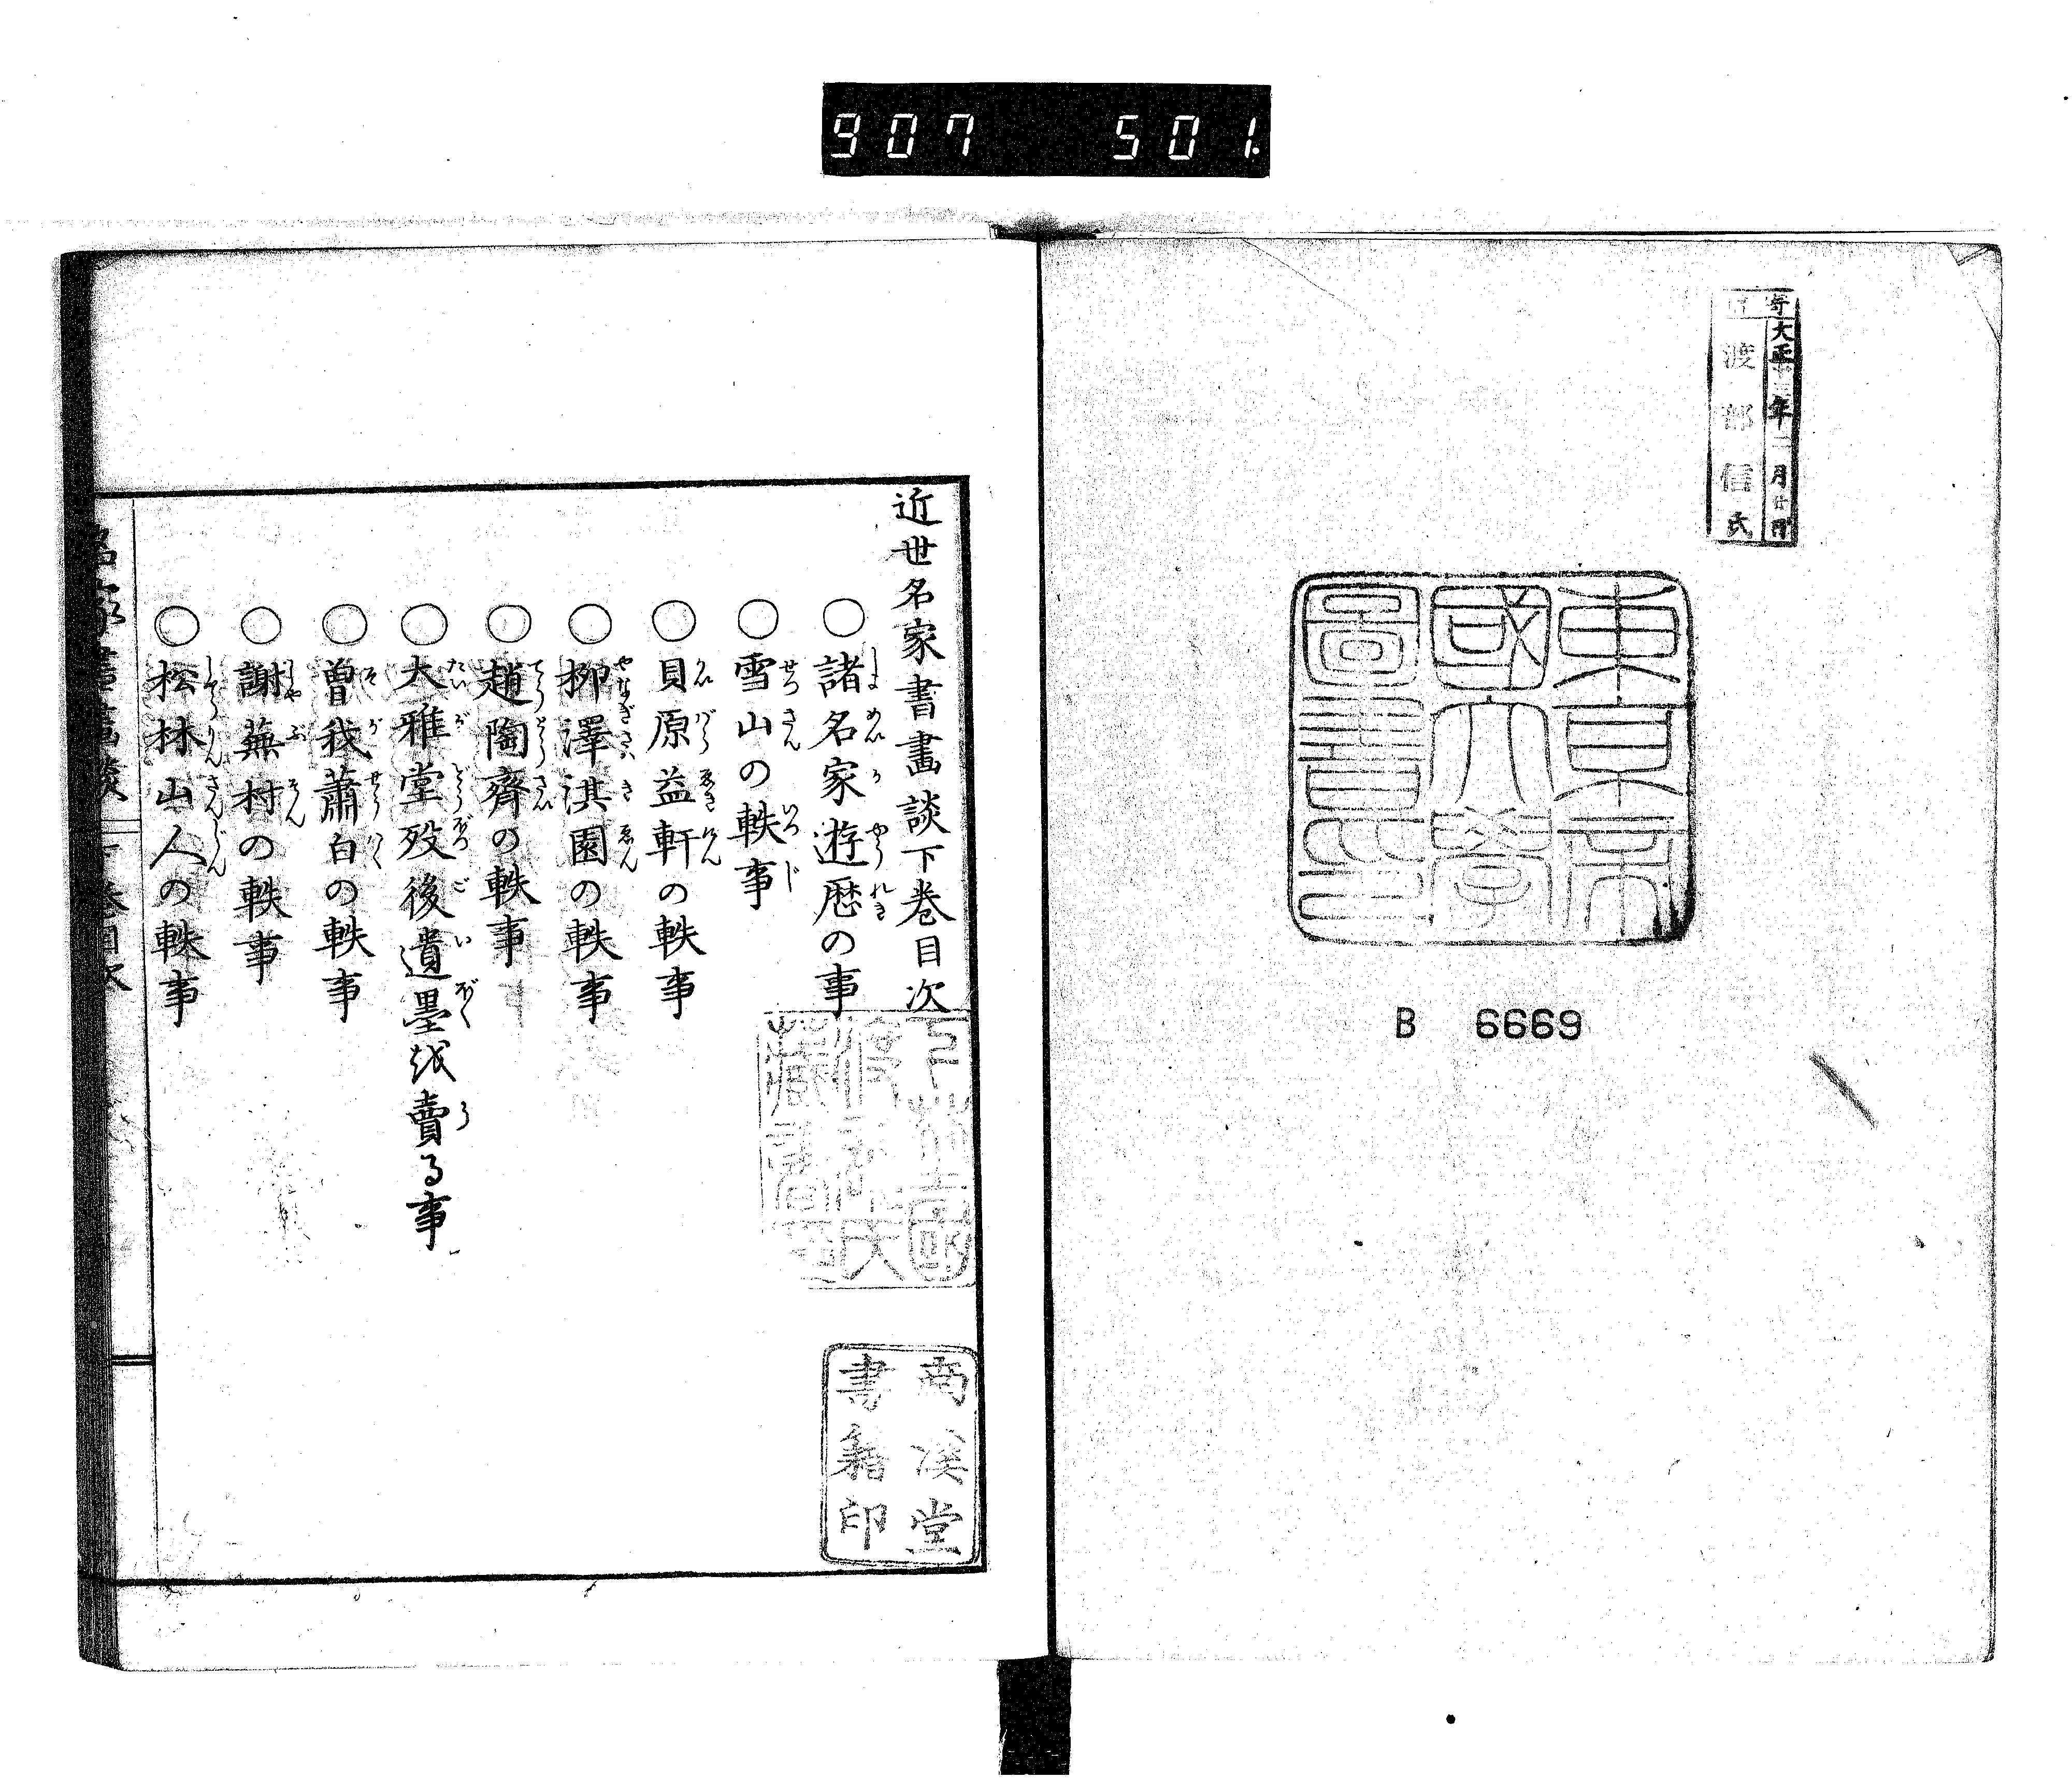 907 501.
寄
大正 年二月廿 日
渡部信氏
東京帝
國大學
圖書印
B 6669
近世名家書畫談下巻目次
○諸名家遊歴の事
○雪山の軼事
○貝原益軒の軼事
○柳澤淇園の軼事
○趙陶齋の軼事
○大雅堂歿後遺墨を賣る事
○曽我蕭白の軼事
○謝蕪村の軼事
○松林山人の軼事
両溪堂
書籍印